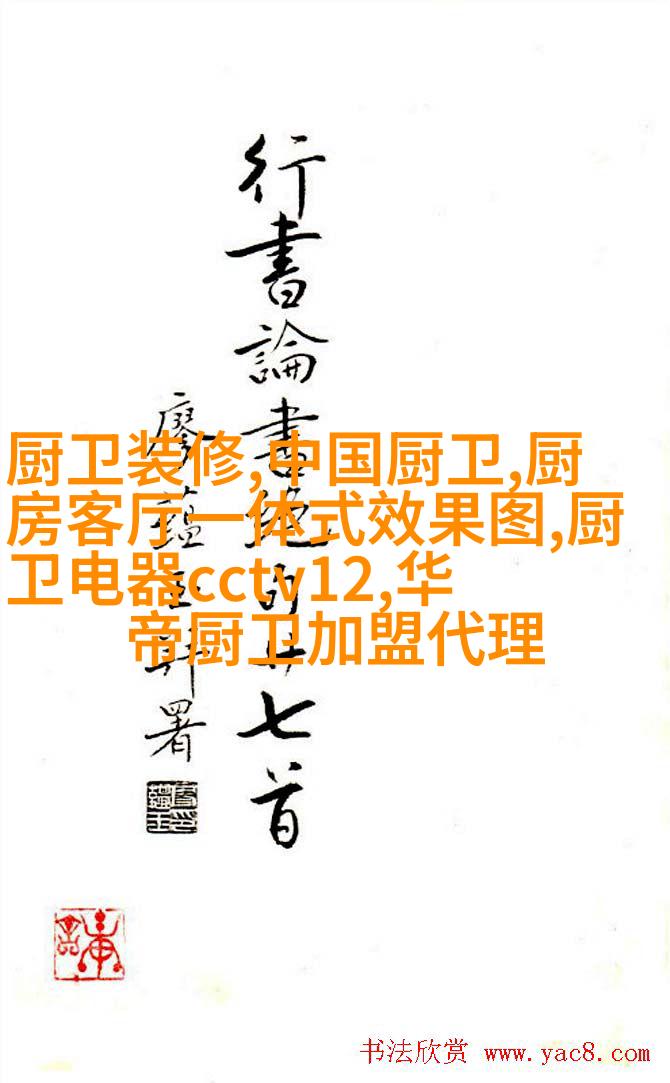 行書論書絶句廿七首
廖蘊玉師署
厨卫装修,中国厨卫,厨
房客厅一体式效果图,厨
卫电器cctv12,华
帝厨卫加盟代理
书法欣赏 www.yac8.com